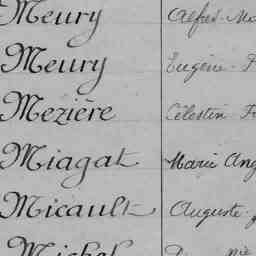 Meury Alfred
Meury Eugène
Mezière Célestin
Miagat Marie
Micault Auguste
Michel